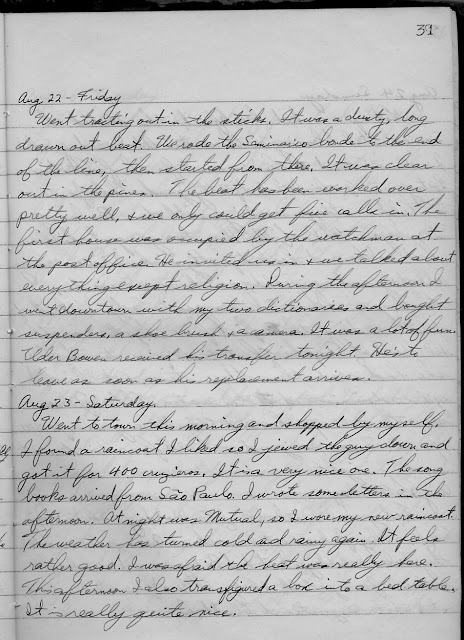 31
Aug. 22 - Friday
Went tracting out in the sticks. It was a dusty, long
drawn out beat. We rode the Seminario bonde to the end
of the line, then started from there. It was clear
out in the pines. The beat has been worked over
pretty well, & we only could get five calls in. The
first house was occupied by the watchman at
the post office. He invited us in & we talked about
everything except religion. During the afternoon I
went downtown with my two dictionaries and bought
suspenders, a shoe brush & a camera. It was a lot of fun.
Elder Bowen received his transfer tonight. He's to
leave as soon as his replacement arrives.
Aug 23 - Saturday.
Went to town this morning and shopped by myself.
I found a raincoat I liked so I jewed the guy down and
got it for 400 cruzieros. It is a very nice one. The song
books arrived from São Paulo. I wrote some letters in the
afternoon. At night was Mutual, so I wore my new raincoat.
The weather has turned cold ad rainy again. It feels
rather good. I was afraid the heat was really here.
This afternoon I also transfigured a box into a bed table.
It is really quite nice.